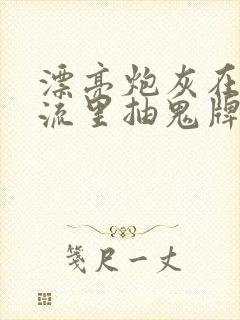 漂亮炮灰在
流里抽鬼牌
笺尺一丈